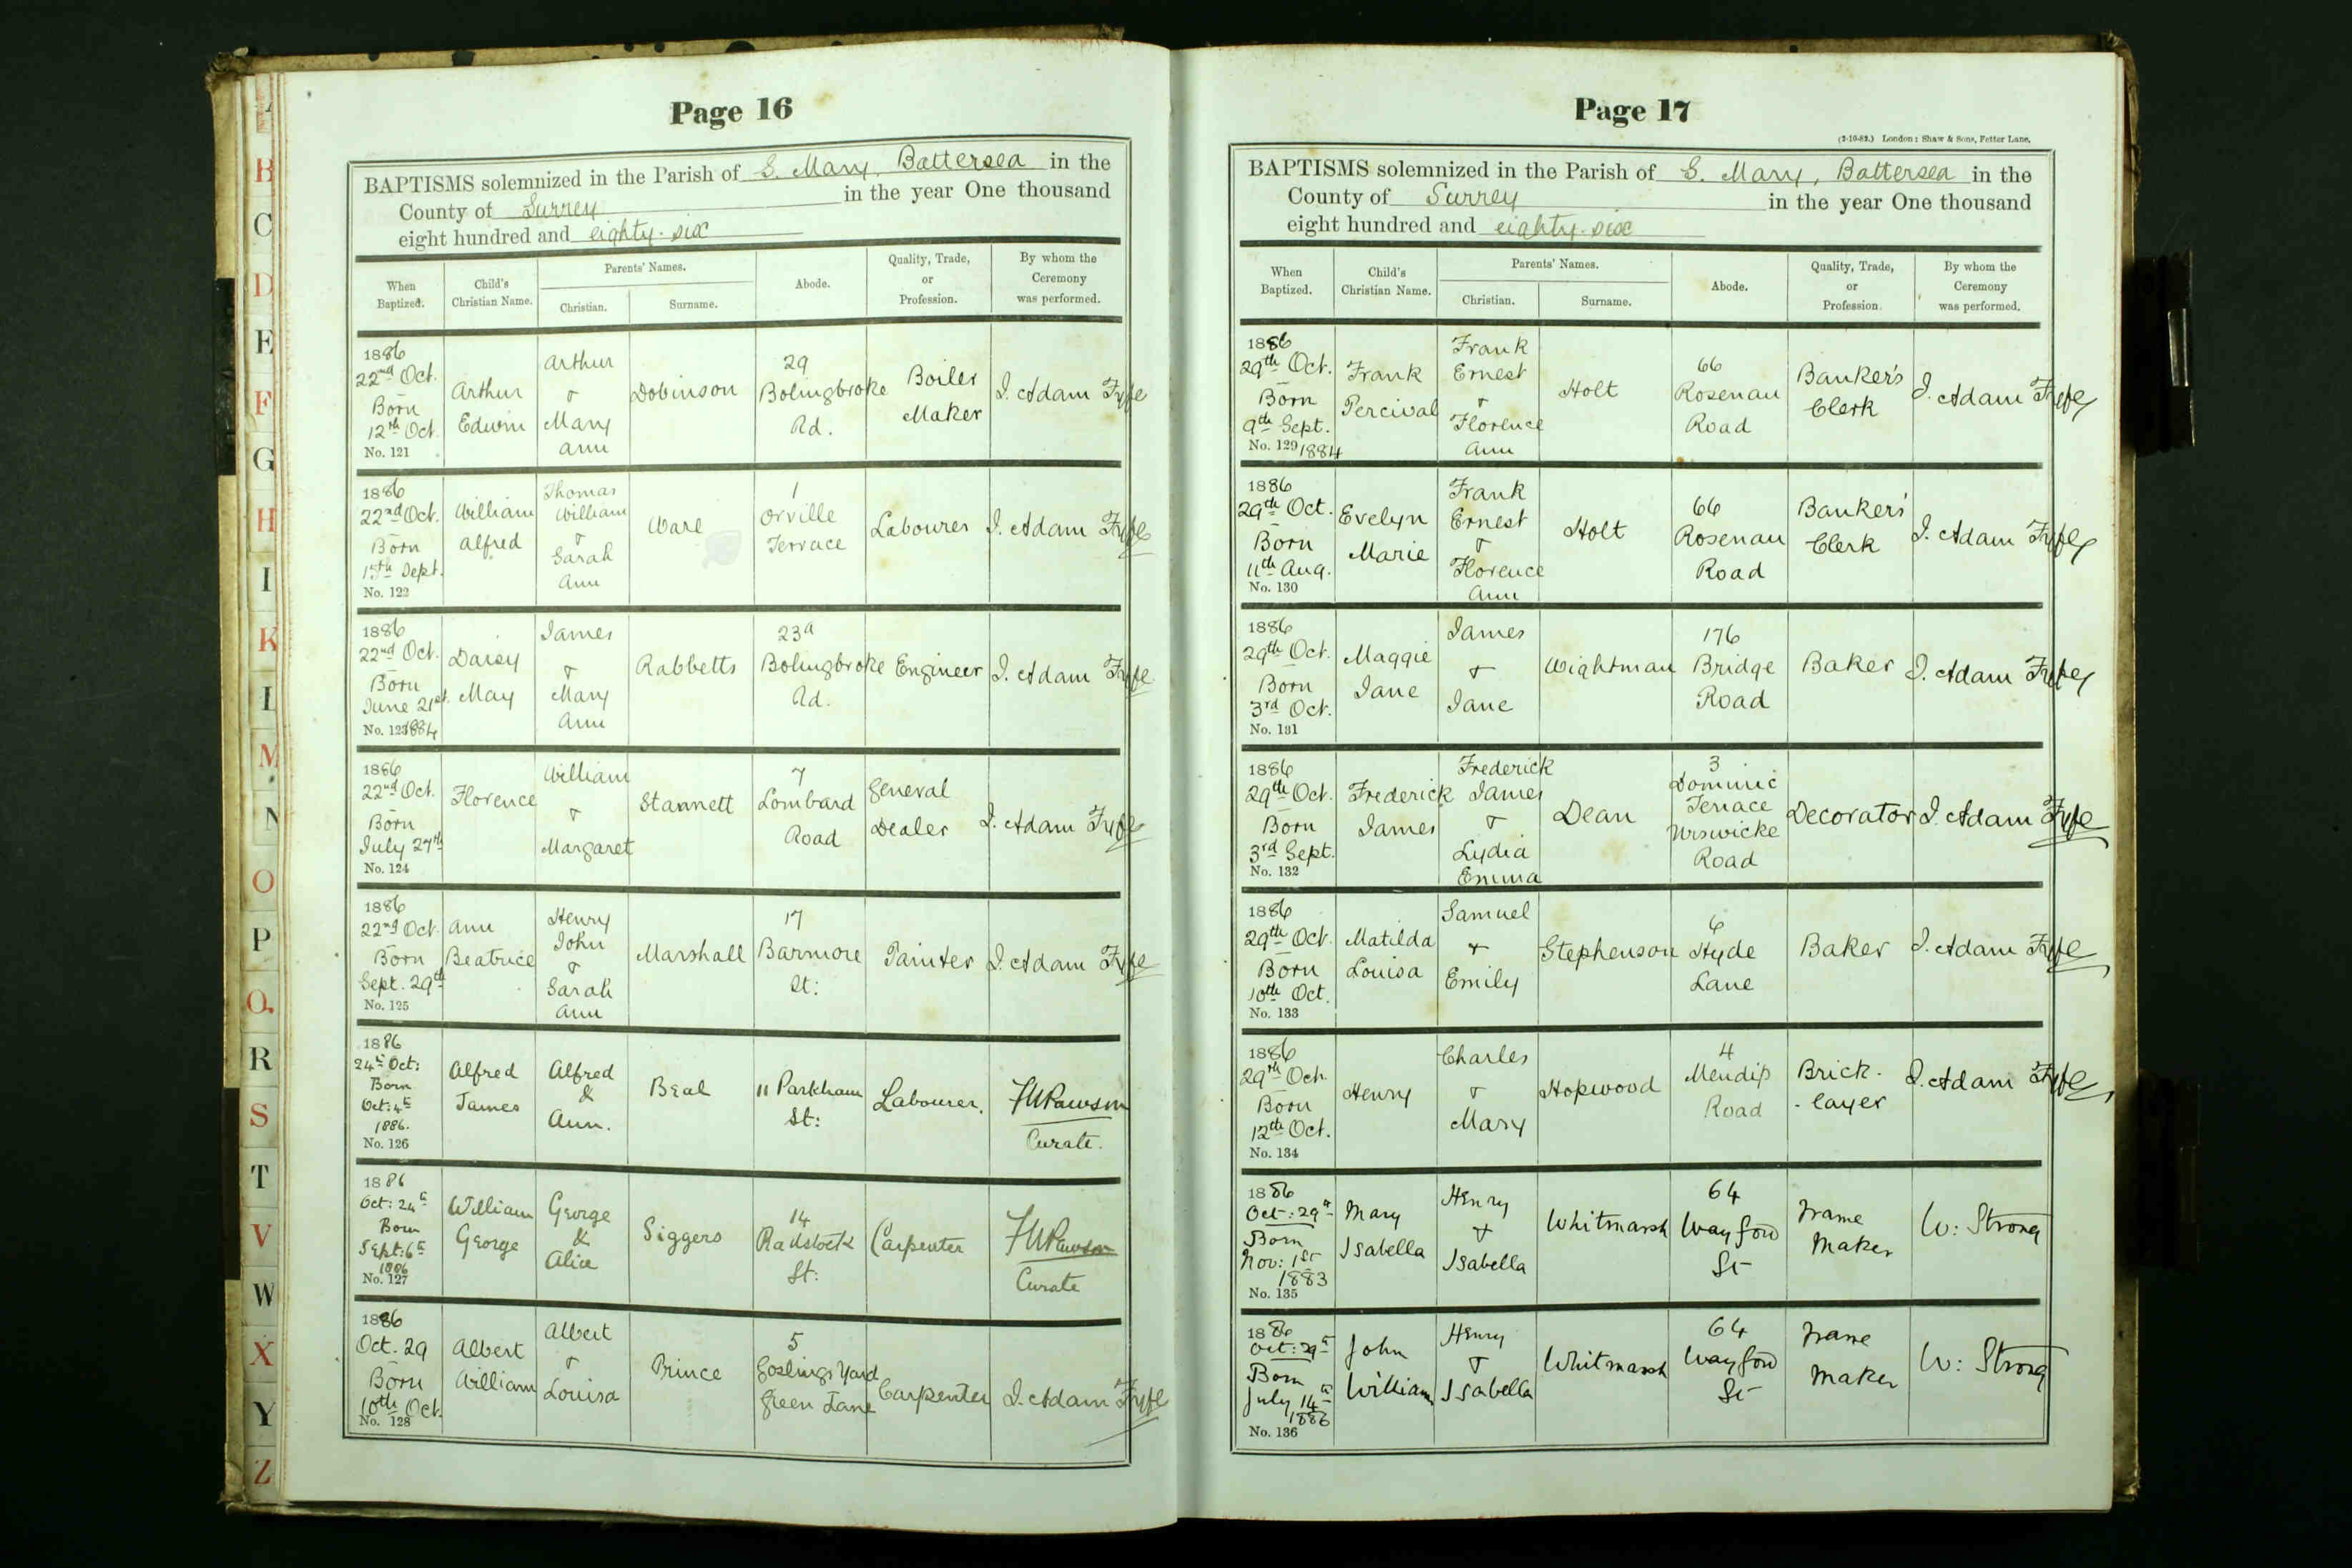 A
B
C
D
E
F
G
H
I
K
L
M
N
O
P
Q.
R
S
T
V
W
X
Y
Z
Page 16
BAPTISMS solemnized in the Parish of S. Mary, Battersea in the
County of Surrey in the year One thousand
eight hundred and eighty-six
When Baptized. Child's Christian Name. Parents' Names. Christian. Surname. Abode. Quality, Trade, or Profession. By whom the Ceremony was performed.
1886 22nd Oct. Born 12th Oct. No. 121 Arthur Edwin Arthur & Mary Ann Dobinson 29 Bolingbroke Rd. Boiler Maker J. Adam Fyfe
1886 22nd Oct. Born 15th Sept. No. 122 William Alfred Thomas William & Sarah Ann Ware 1 Orville Terrace Labourer J. Adam Fyfe
1886 22nd Oct. Born June 21st 1884 No. 123 Daisy May James & Mary Ann Rabbetts 23a Bolingbroke Rd. Engineer J. Adam Fyfe
1886 22nd Oct. Born July 27th No. 124 Florence William & Margaret Stannett 7 Lombard Road General Dealer J. Adam Fyfe
1886 22nd Oct. Born Sept. 29th No. 125 Ann Beatrice Henry John & Sarah Ann Marshall 17 Barmore St: Painter J. Adam Fyfe
1886 24th Oct: Born Oct: 4th 1886. No. 126 Alfred James Alfred & Ann. Beal 11 Parkham St: Labourer. Pawson Curate.
1886 Oct: 24th Born Sept: 6th 1886 No. 127 William George George & Alice Siggers 14 Radstock St: Carpenter Pawson Curate
1886 Oct. 29 Born 10th Oct. No. 128 Albert William Albert & Louisa Prince 5 Goslings Yard Green Lane Carpenter J. Adam Fyfe
Page 17
(2-10-82.) London: Shaw & Sons, Fetter Lane.
BAPTISMS solemnized in the Parish of S. Mary, Battersea in the
County of Surrey in the year One thousand
eight hundred and eighty-six
When Baptized. Child's Christian Name. Parents' Names. Christian. Surname. Abode. Quality, Trade, or Profession. By whom the Ceremony was performed.
1886 29th Oct. Born 9th Sept. 1884 No. 129 Frank Percival Frank Ernest & Florence Ann Holt 66 Rosenau Road Banker's Clerk J. Adam Fyfe
1886 29th Oct. Born 11th Aug. No. 130 Evelyn Marie Frank Ernest & Florence Ann Holt 66 Rosenau Road Banker's Clerk J. Adam Fyfe
1886 29th Oct. Born 3rd Oct. No. 131 Maggie Jane James & Jane Wightman 176 Bridge Road Baker J. Adam Fyfe
1886 29th Oct. Born 3rd Sept. No. 132 Frederick James Frederick James & Lydia Emma Dean 3 Dominic Terrace Urswicke Road Decorator J. Adam Fyfe
1886 29th Oct. Born 10th Oct. No. 133 Matilda Louisa Samuel & Emily Stephenson 6 Hyde Lane Baker J. Adam Fyfe
1886 29th Oct. Born 12th Oct. No. 134 Henry Charles & Mary Hopwood 4 Mendip Road Brick-layer J. Adam Fyfe
1886 Oct: 29th Born Nov: 1st 1883 No. 135 Mary Isabella Henry & Isabella Whitmarsh 64 Wayford St Frame Maker W: Strong
1886 Oct: 29th Born July 14th 1886 No. 136 John William Henry & Isabella Whitmarsh 64 Wayford St Frame Maker W: Strong